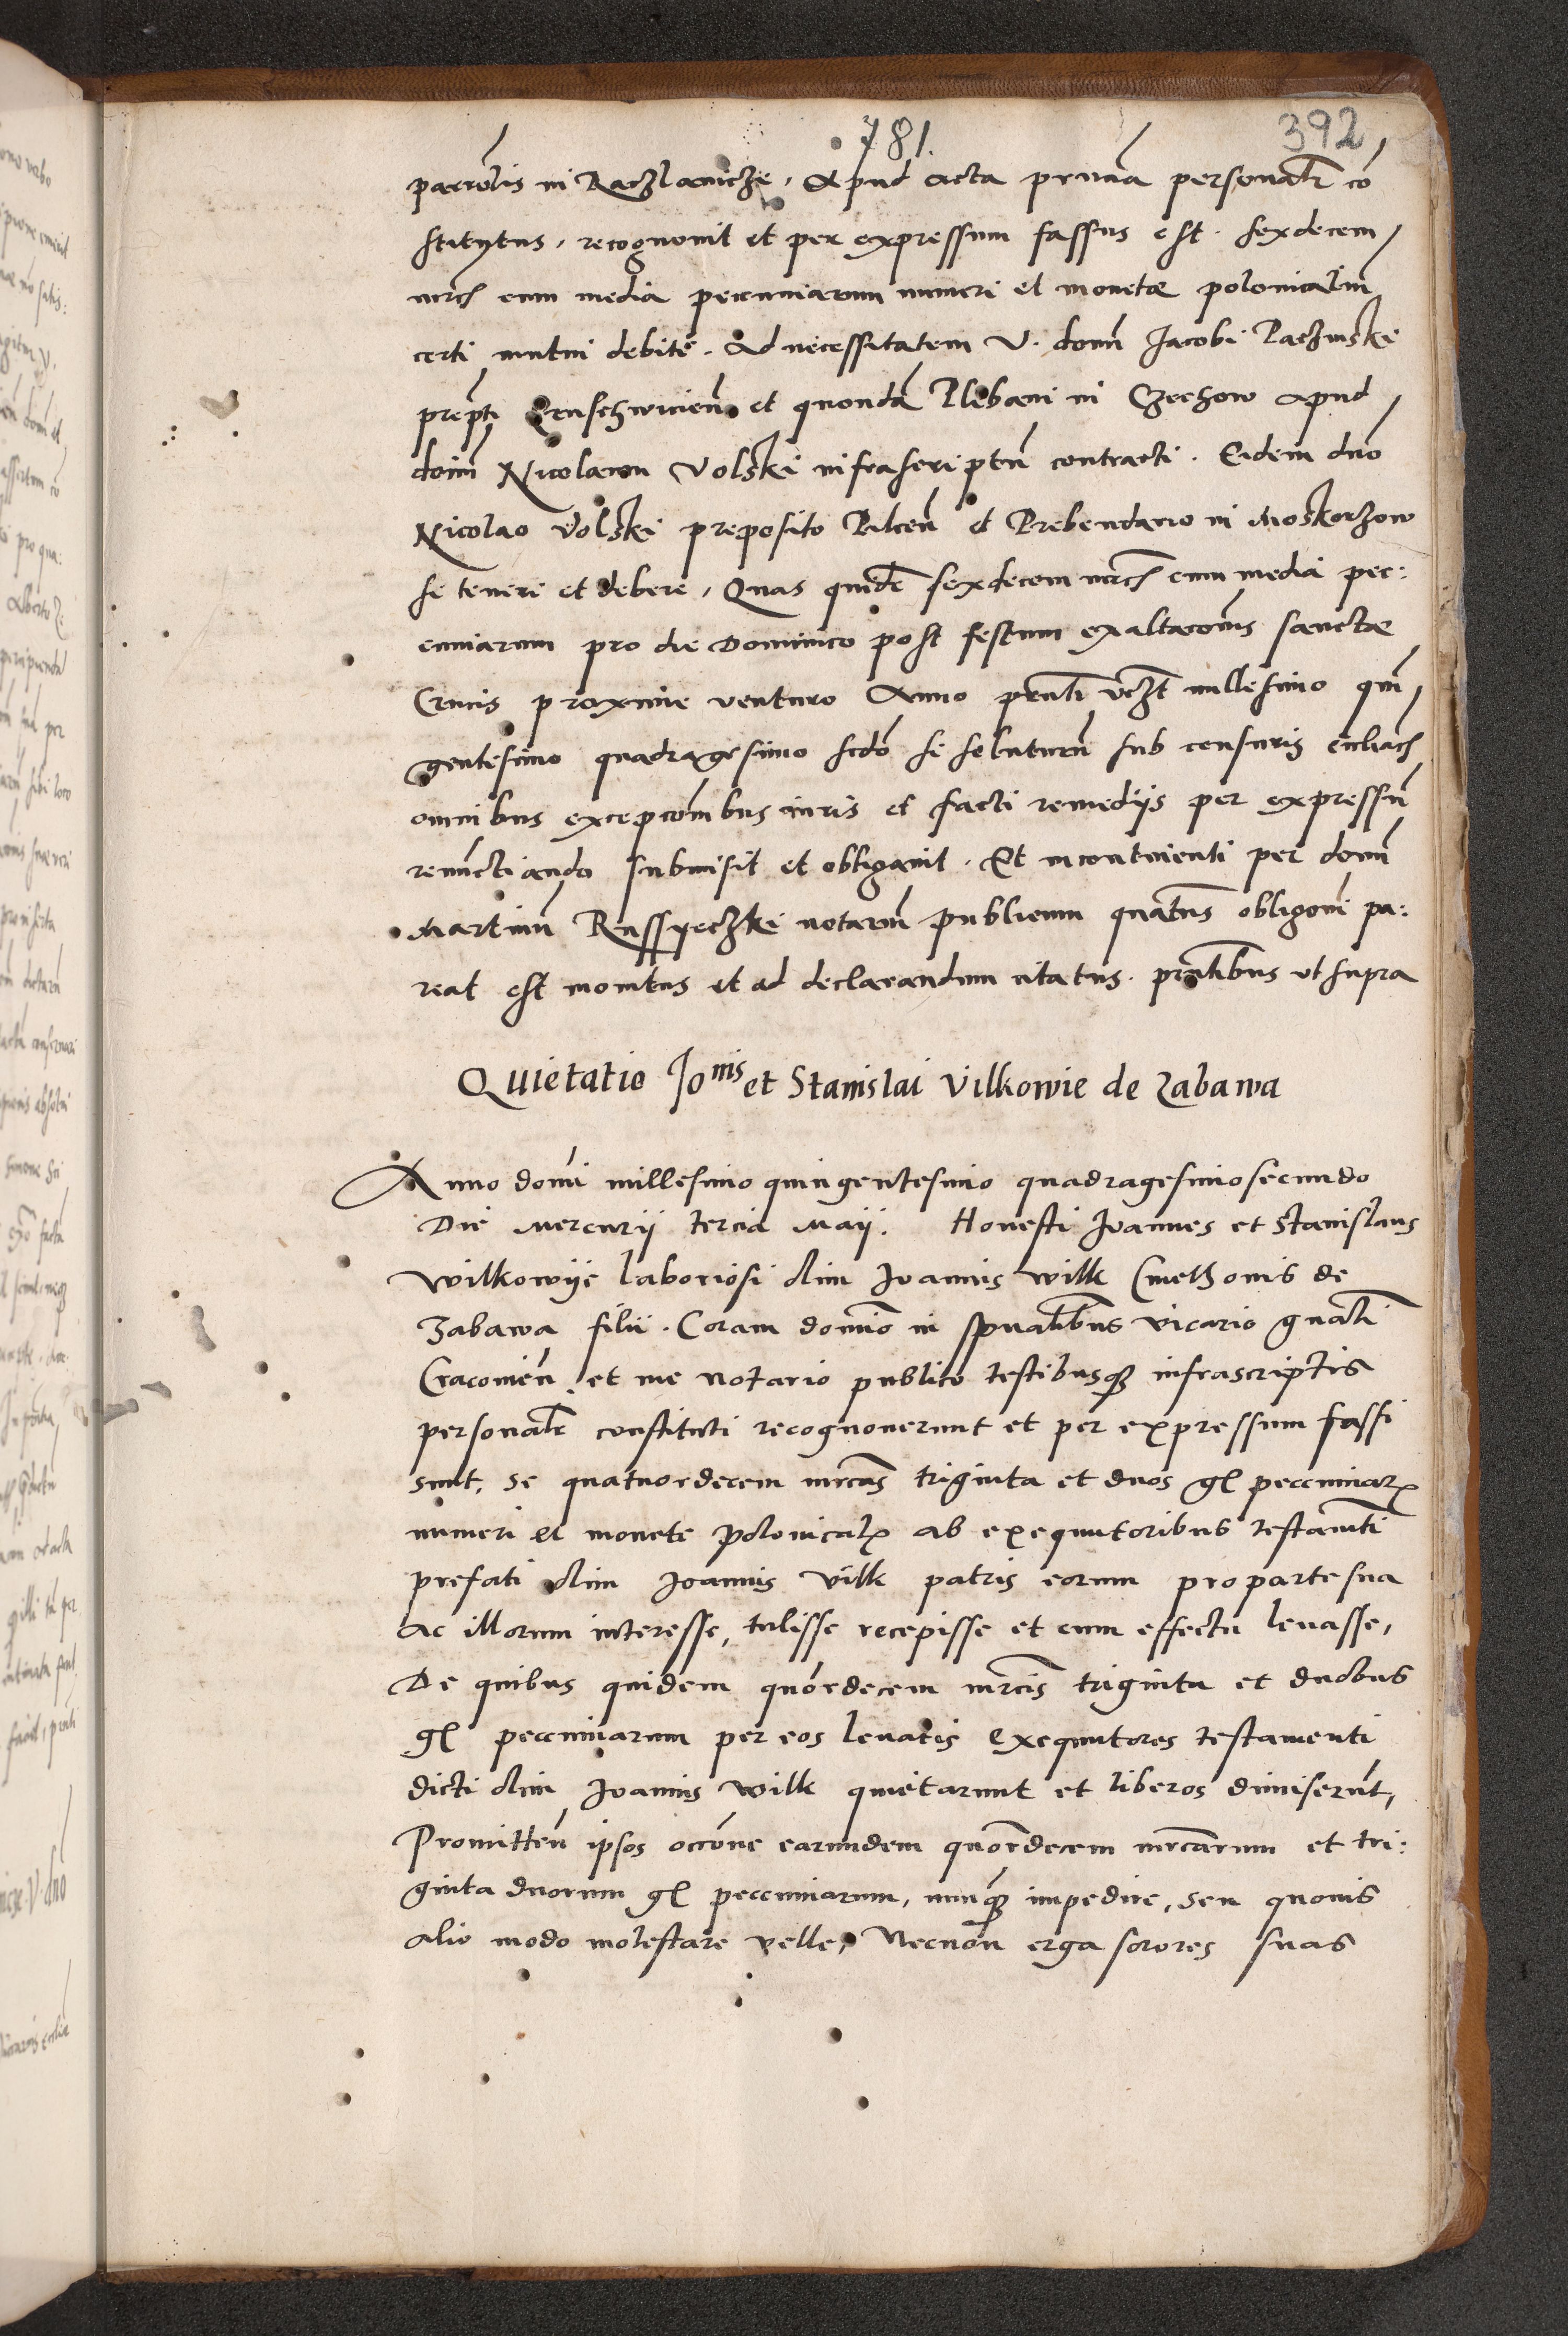 781.
392
parrolis in Raczlawicze, Apud acta prnaa personalr co
stitutus, recognovit et per expressum fassus est. sexdecem
mrcs cum media pecuniarum numeri et monetæ polonicalium
certi mutui debite. Ad necessitatem V. domi Jacobi Paczinski
prepti et quonda Plebani in Czechow apud
domi Nicolaum Volski infrascriptum contracti. Eidem dno
Nicolao Volski preposito Pilcen et Prebendario in Moskorzow
se teneri et debere, Quas quide sexdecem mrcs cum media pec:
cuniarum pro die Dominico post festum exaltaconis sanctæ
Crucis proxime venturo Anno prnti vczt millesimo quin
gentesimo quadragesimo scdo se soluturu sub censuris
omnibus excepconibus iuris et facti remediis per expressu
renuctiando submisit et obligavit. Et incontinenti per domi
Martinu Russyeczki notariu publicum quatnus obligoni pa:
reat est monitus et ad declarandum citatus. prntibus ut supra
Quietatio Jonis et Stanislai Vilkowie de Zabawa
Anno domi millesimo quingentesimo quadragesimosecundo
Die Mercurij tercia Maij. Honesti Joannes et Stanislaus
Wilkowije laboriosi olim Joannis Wilk Cmethonis de
Zabawa filii. Coram domino in spualibus vicario gnali
Cracovien, et me notario publico testibusq infrascriptis
personalr constituti recognoverunt et per expressum fassi
sunt, se quatuordecem mrcas triginta et duos gl peccuniarz
numeri et monete polonicalz ab exequutoribus testamti
prefati olim Joannis Vilk patris eorum pro parte sua
ac illorum interesse, tulisse recepisse et cum effectu levasse,
De quibus quidem quordecem mrcis triginta et duobus
gl peccuniarum per eos levatis exequutores testamenti
dicti olim Joannis Wilk quietarunt et liberos dimiserut,
Promitten ipsos occone earumdem quordecem mrcarum et tri:
ginta duorum gl peccuniarum, nunq impedire, seu quovis
alio modo molestare velle, Necnon erga sorores suas